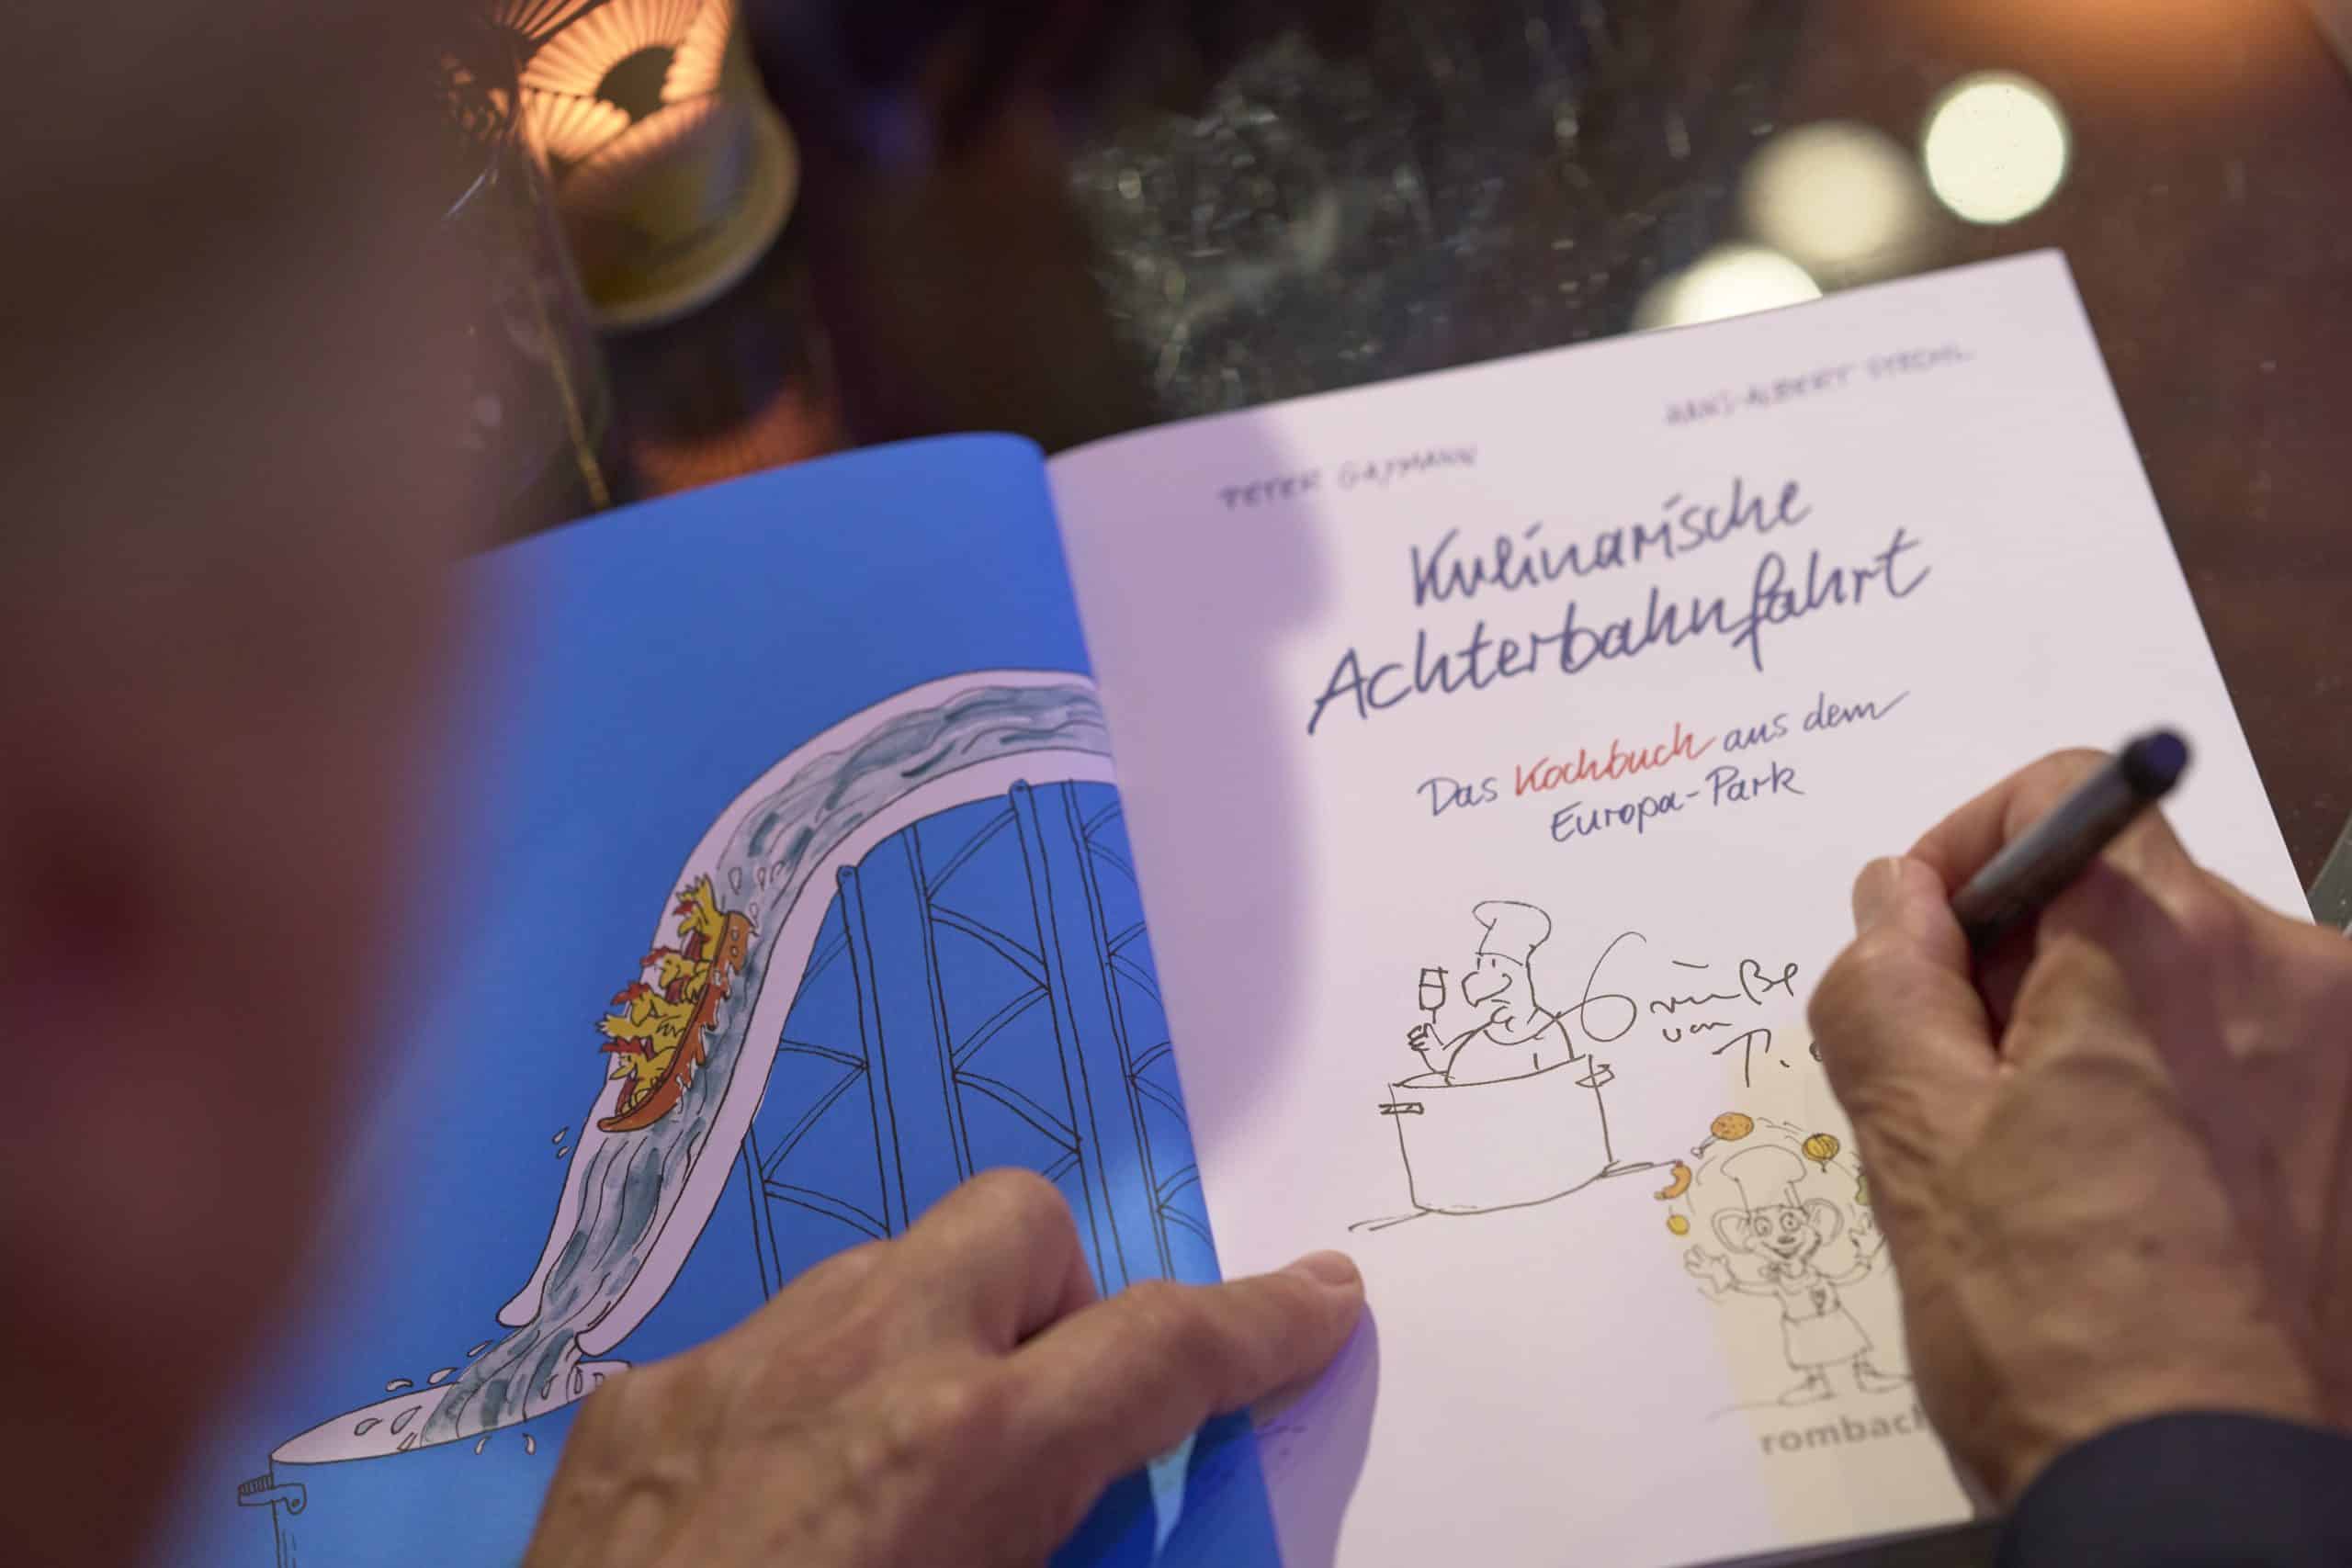 PETER GAYMANN
HANS-ALBERT STECHL
Kulinarische
Achterbahnfahrt
Das Kochbuch aus dem
Europa-Park
Grüße
von
P.
rombach